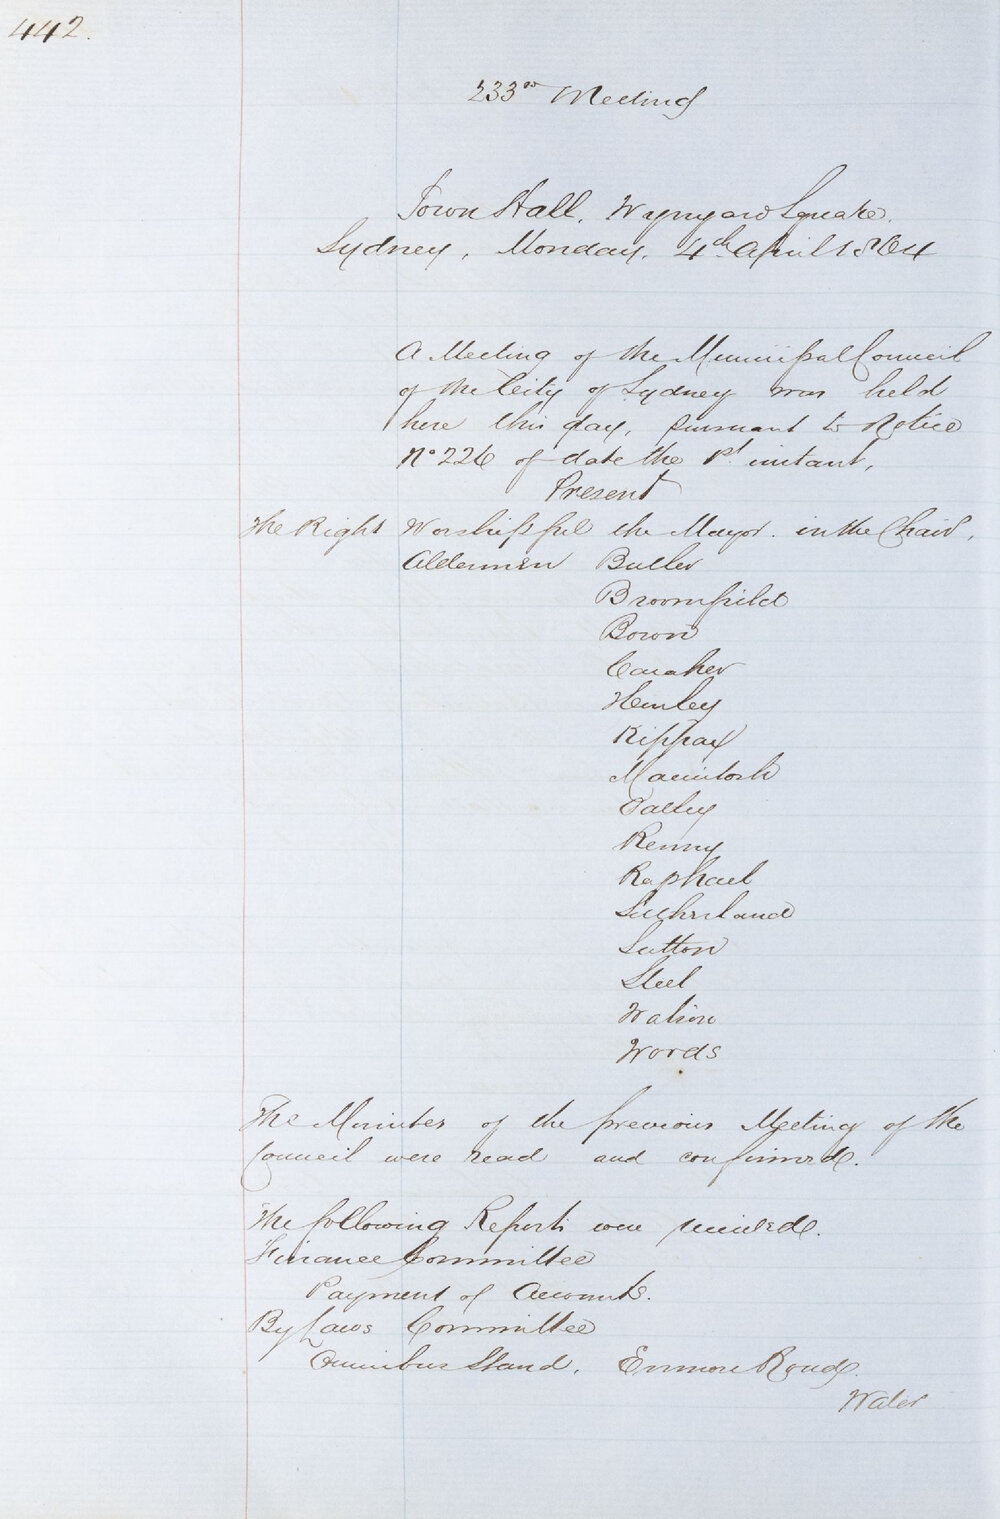 442.
233rd Meeting
Town Hall, Wynyard Square.
Sydney, Monday, 4th April 1864
A Meeting of the Municipal Council
of the City of Sydney was held
here this day, pursuant to Notice
No 226 of date the 1st instant,
Present
The Right Worshipful the Mayor. in the Chair,
Aldermen Butler
Broomfield
Bown
Caraher
Hurley
Kippax
Macintosh
Oatley
Renny
Raphael
Sutherland
Sutton
Steel
Watson
Woods
The Minutes of the previous Meeting of the
Council were read and confirmed.
The following Reports were received.
Finance Committee
Payment of Accounts.
By Laws Committee
Omnibus Stand, Enmore Road.
Water